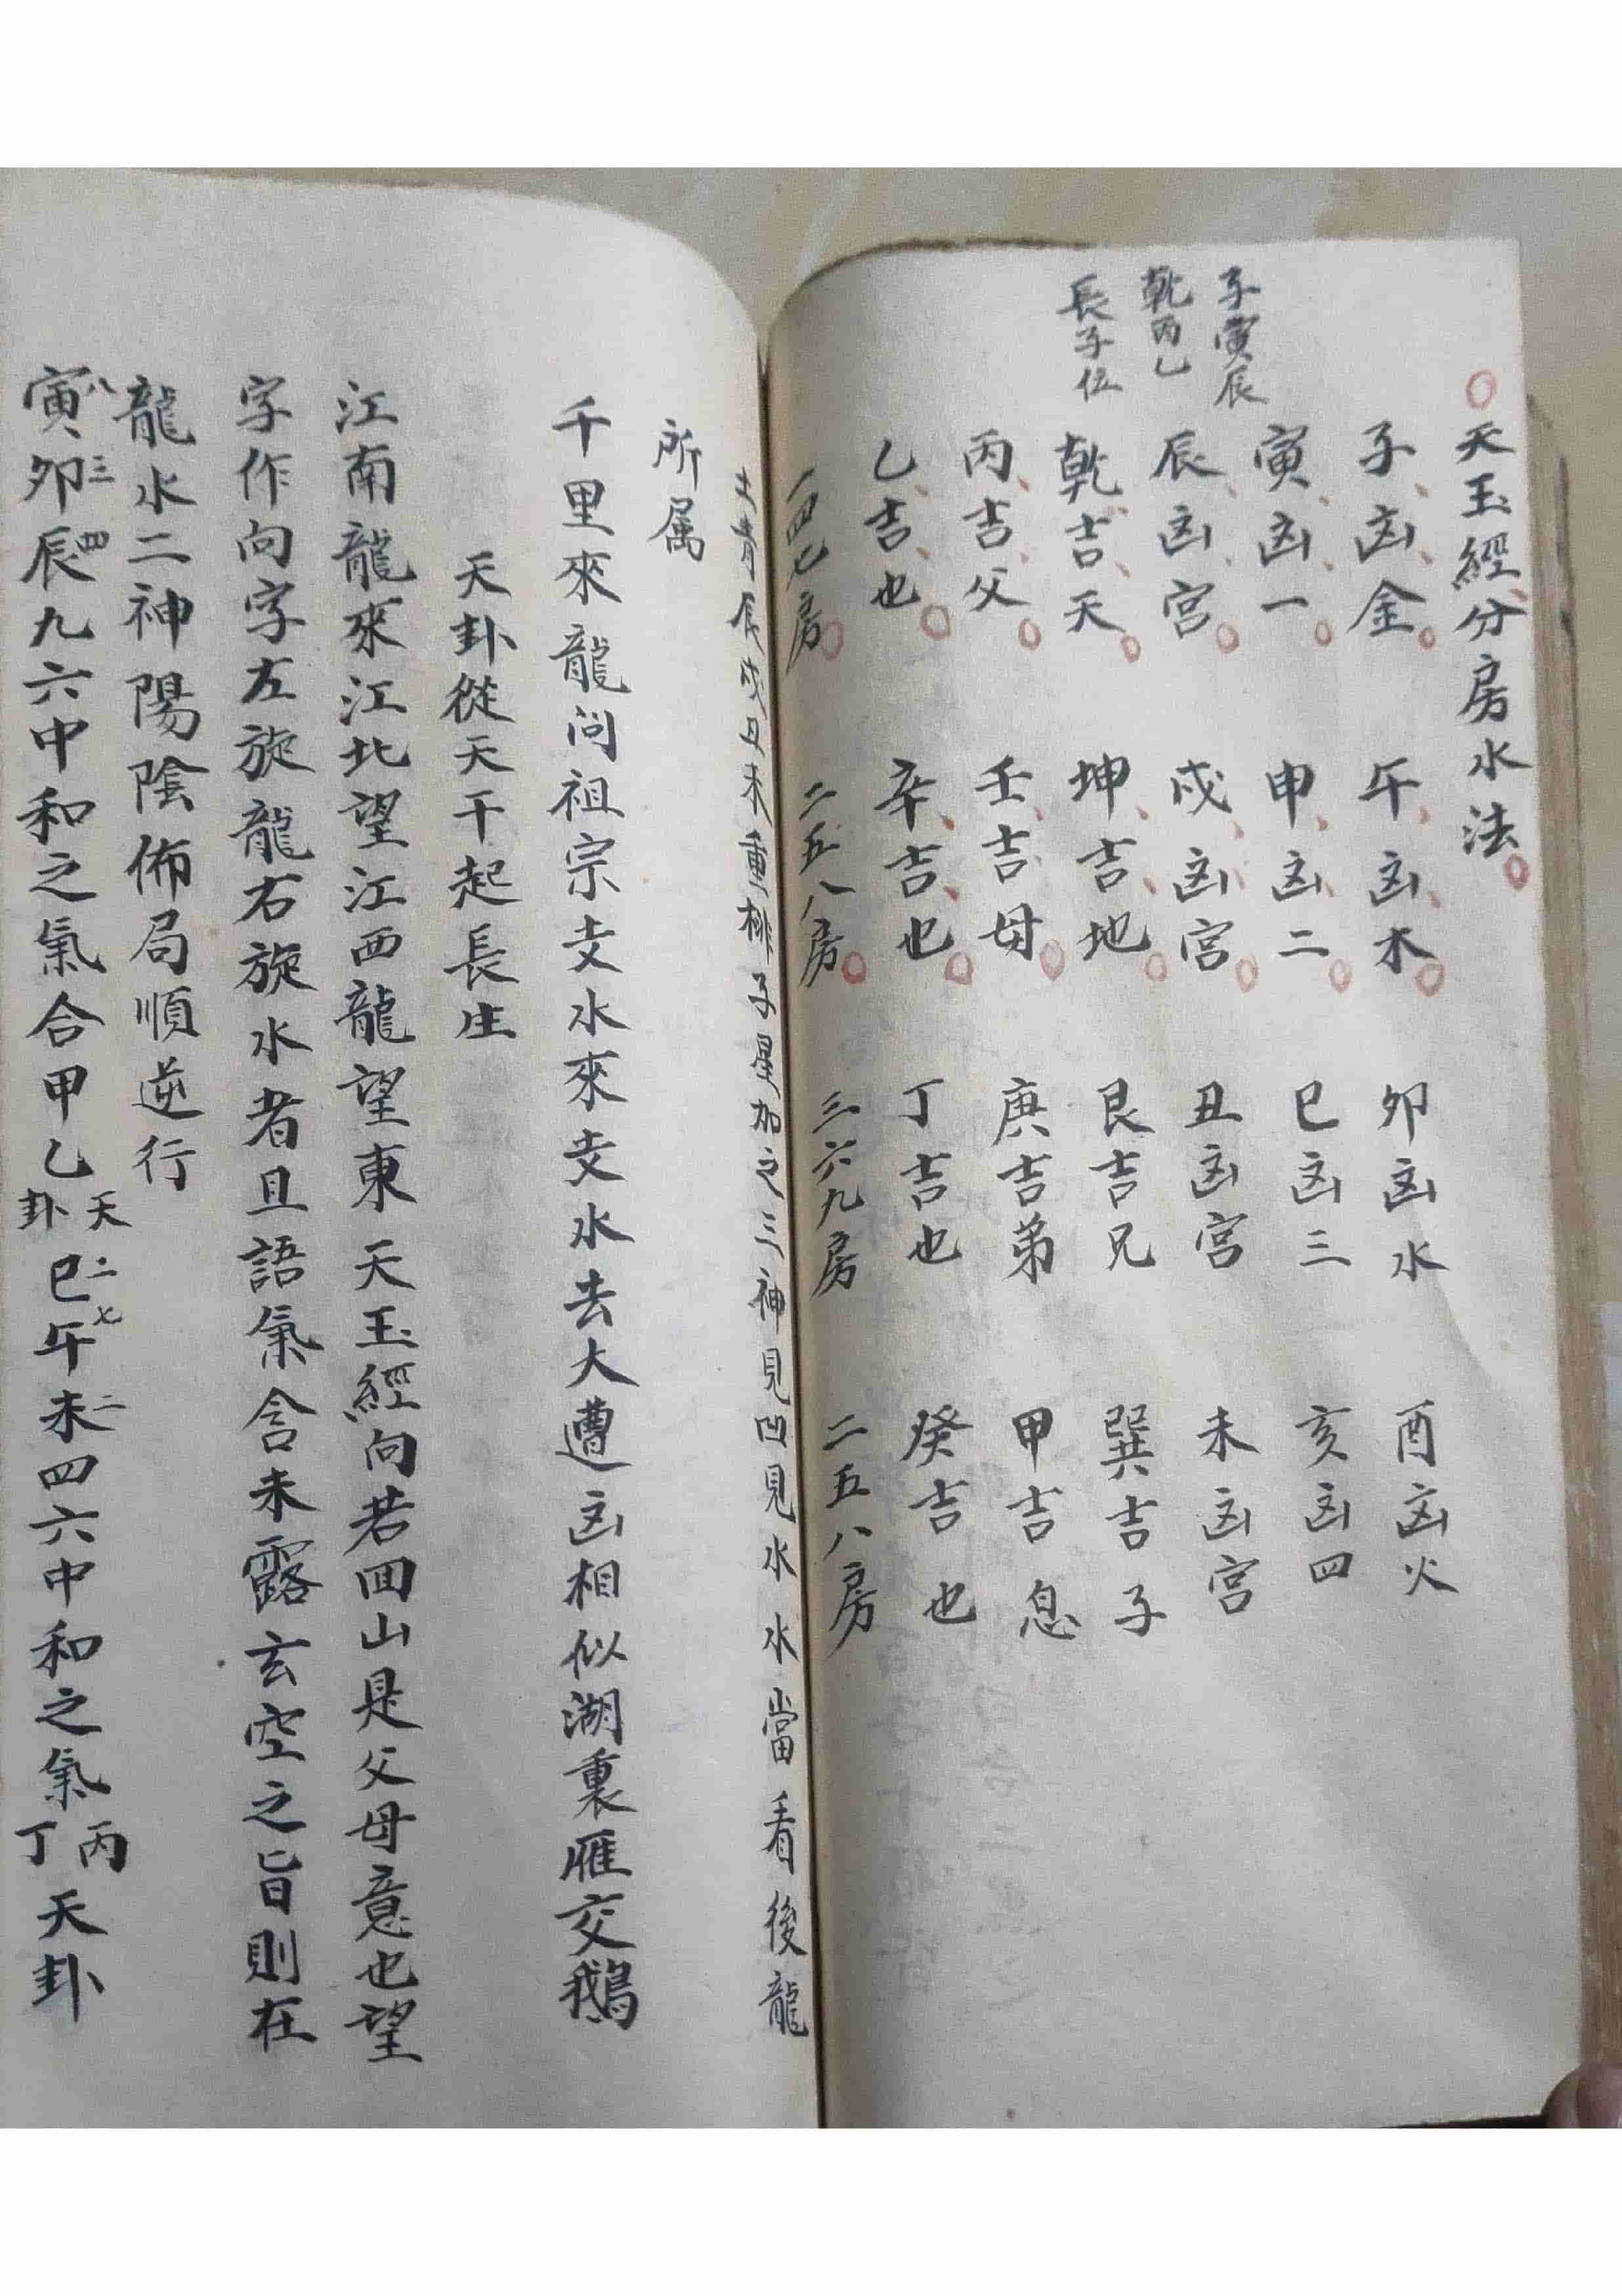 天玉經分房水法
子寅辰
乾丙乙
長子位
子凶金 午凶木 卯凶水 酉凶火
寅凶一 申凶二 巳凶三 亥凶四
辰凶宫 戌凶宫 丑凶宫 未凶宫
乾吉天 坤吉地 艮吉兄 巽吉子
丙吉父 壬吉母 庚吉弟 甲吉息
乙吉也 辛吉也 丁吉也 癸吉也
一四七房 二五八房 三六九房 二五八房
辰戌丑未重排子星加之三神見凹見水水當看後龍
所属
千里來龍问祖宗支水來支水去大遭凶相似湖裏雁交鵝
天卦從天干起長生
江南龍來江北望江西龍望東天玉經向若囬山是父母意也望
字作向字左旋龍右旋水者且語氣含未露玄空之旨則在
龍水二神陽陰佈局順逆行
寅八卯三辰四九六中和之氣合甲乙天卦巳二午七未二四六中和之氣丙丁天卦